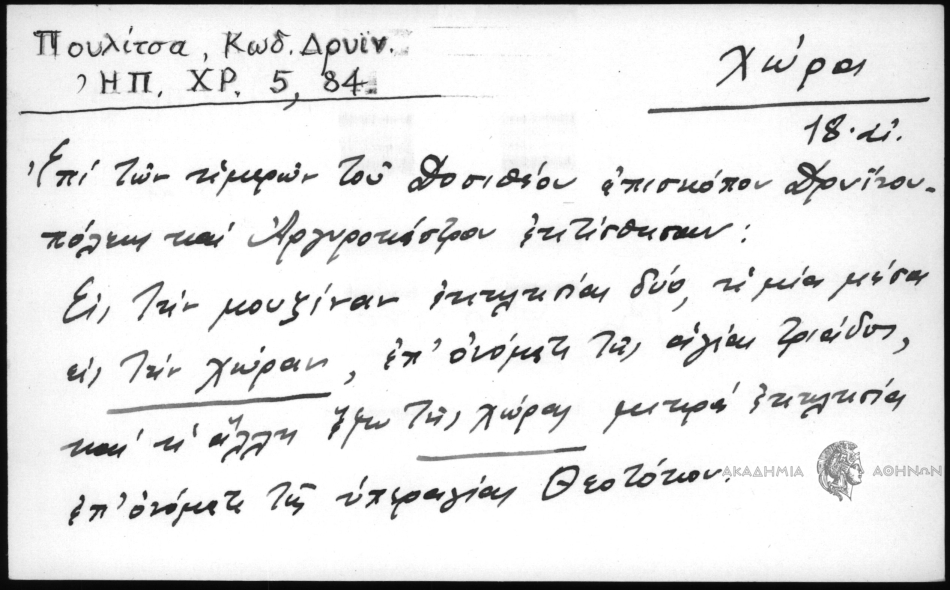 Πουλίτσα, Κωδ. Δρυϊν.
ἨΠ. ΧΡ. 5, 84.
χώρα
18. αἰ.
Ἐπί τῶν ἡμερῶν τοῦ Δοσιθέου ἐπισκόπου Δρυϊνου-
πόλεως καί Ἀργυροκάστρου ἐκτίσθησαν:
Εἰς τήν μουζίναν ἐκκλησίαι δύο, ἡ μία μέσα
εἰς τήν χώραν, ἐπ' ὀνόματι τῆς ἁγίας τριάδος,
καί ἡ ἄλλη ἔξω τῆς χώρας μικρά ἐκκλησία
ἐπ' ὀνόματι τῆς ὑπεραγίας Θεοτόκου.
ΑΚΑΔΗΜΙΑ ΑΘΗΝΩΝ